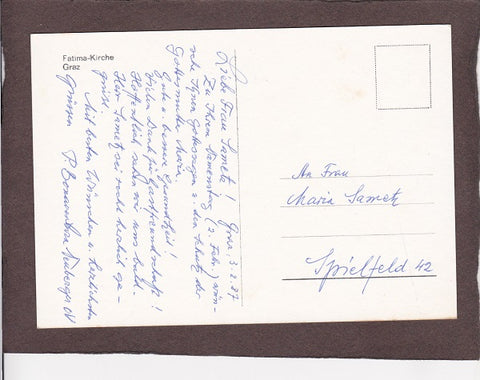 Fatima-Kirche
Graz
Graz 3.2.87
Liebe Frau Sametz!
Zu Ihrem Namenstag (2. Febr.) wün-
sche Ihnen Gottessegen u. den Schutz der
Gottesmutter Maria.
Gute u. bessere Gesundheit!
Vielen Dank für Gastfreundschaft!
Hoffentlich sehen wir uns bald.
Herr Sametz sei recht herzlich ge-
grüßt.
Mit besten Wünschen u. herzlichen
Grüssen P. Bonaventura
An Frau
Maria Sametz
Spielfeld 42